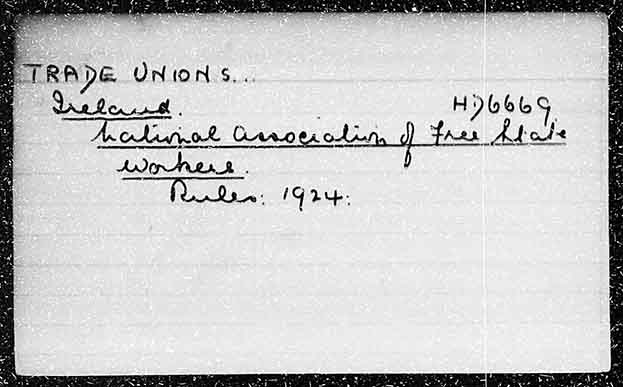 TRADE UNIONS...
Ireland. HD6669
National Association of Free State
Workers.
Rules: 1924.